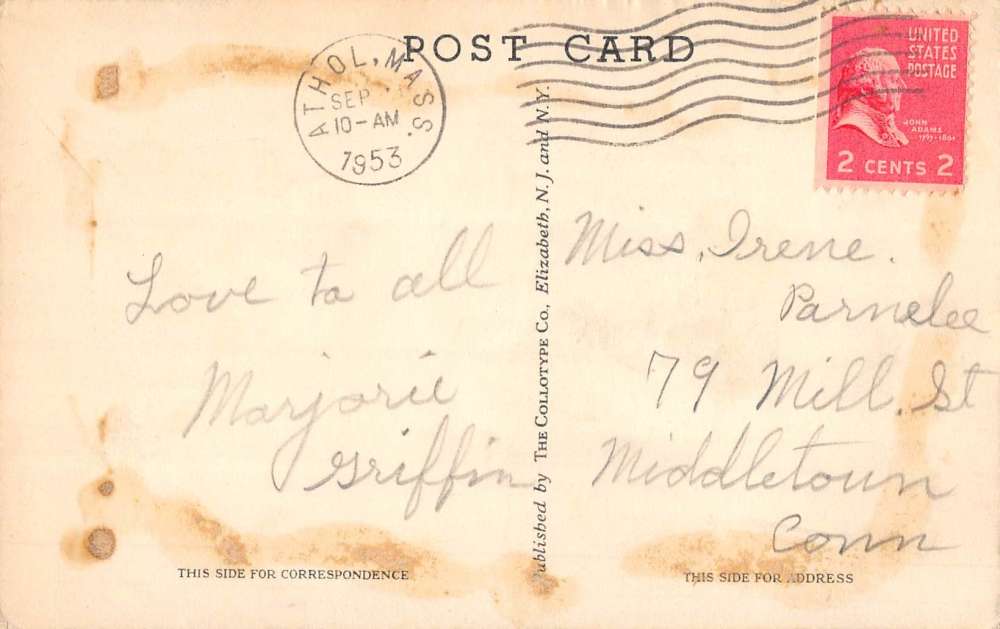 POST CARD
ATHOL, MASS.
SEP
10-AM
1953
UNITED
STATES
POSTAGE
JOHN
ADAMS
1797-1801
2 CENTS 2
Love to all
Marjorie
Griffin
Published by THE COLLOTYPE CO., Elizabeth, N. J. and N. Y.
Miss, Irene.
Parnelee
79 Mill. St
Middletown
Conn
THIS SIDE FOR CORRESPONDENCE
THIS SIDE FOR ADDRESS